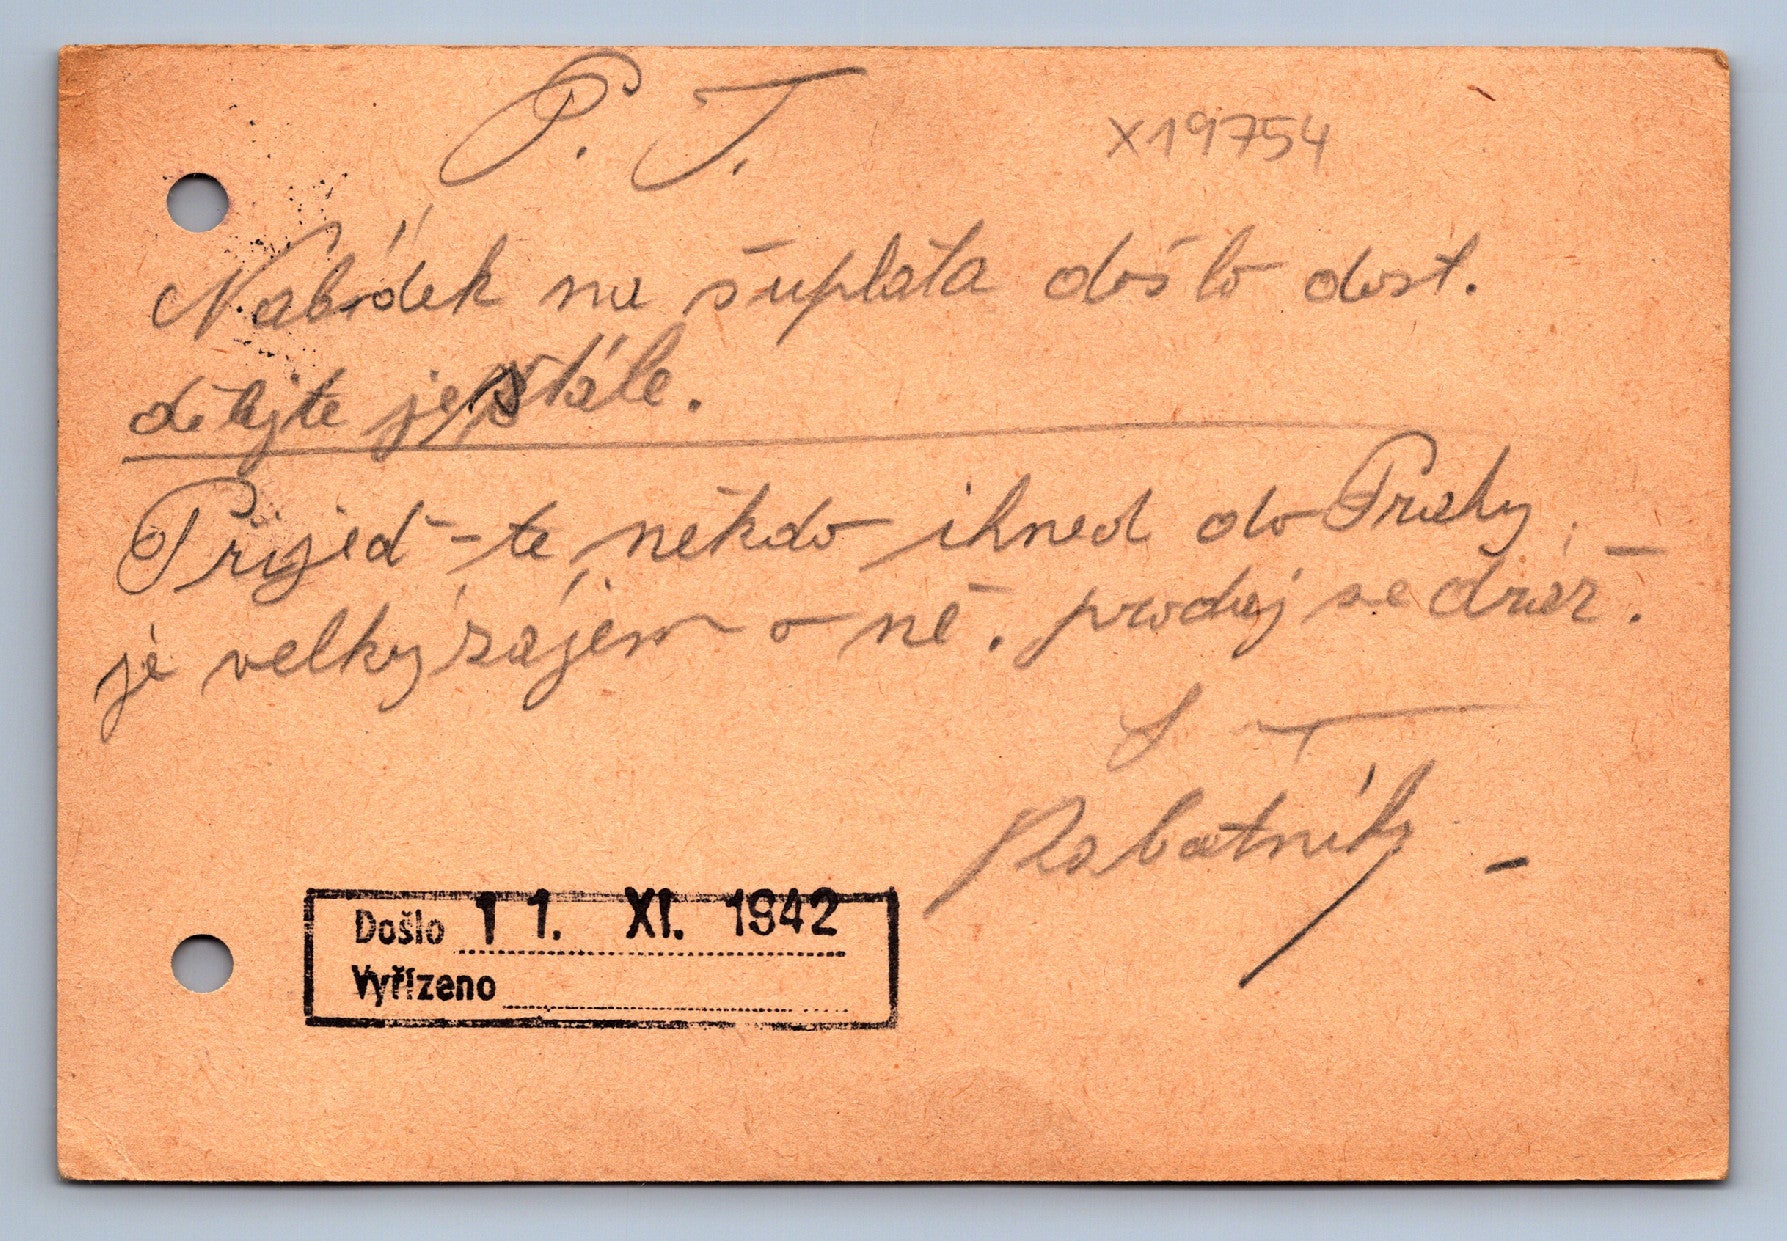 P. T.
X19754
Nabídek na šuplata došlo dost.
dělejte je stále.
Přijeď-te někdo ihned do Prahy.
je velký zájem o ně. prodej se dráž.
Došlo 11. XI. 1942
Vyřízeno